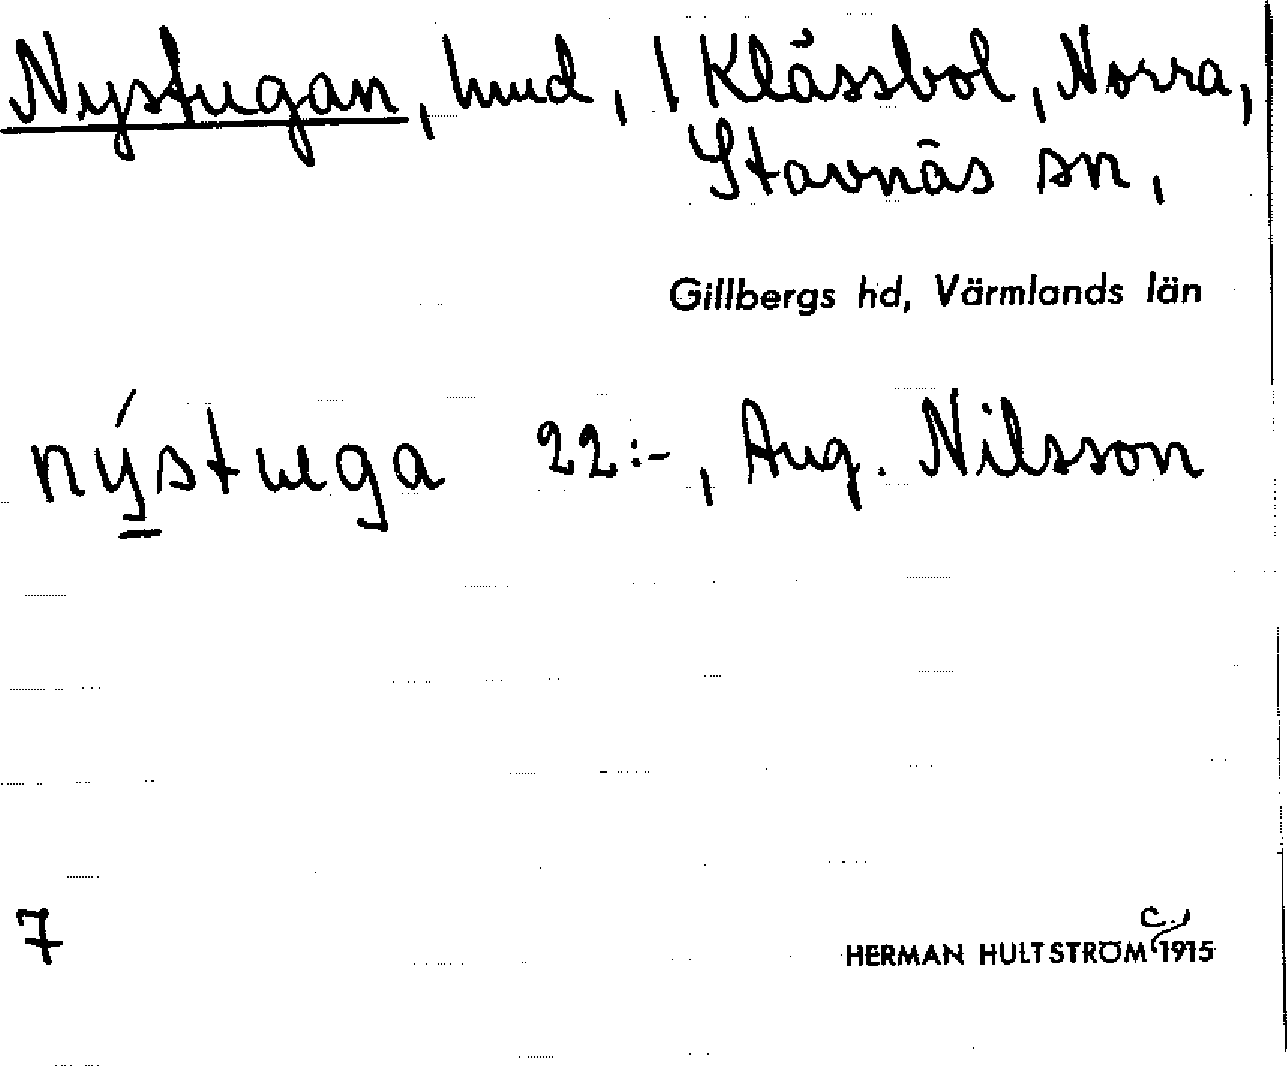 Nystugan, hmd, / Klässbol, Norra,
Stavnäs sn,
Gillbergs hd, Värmlands län
nýstuga 22:-, Aug. Nilsson
c.
7 HERMAN HULTSTRÖM 1915